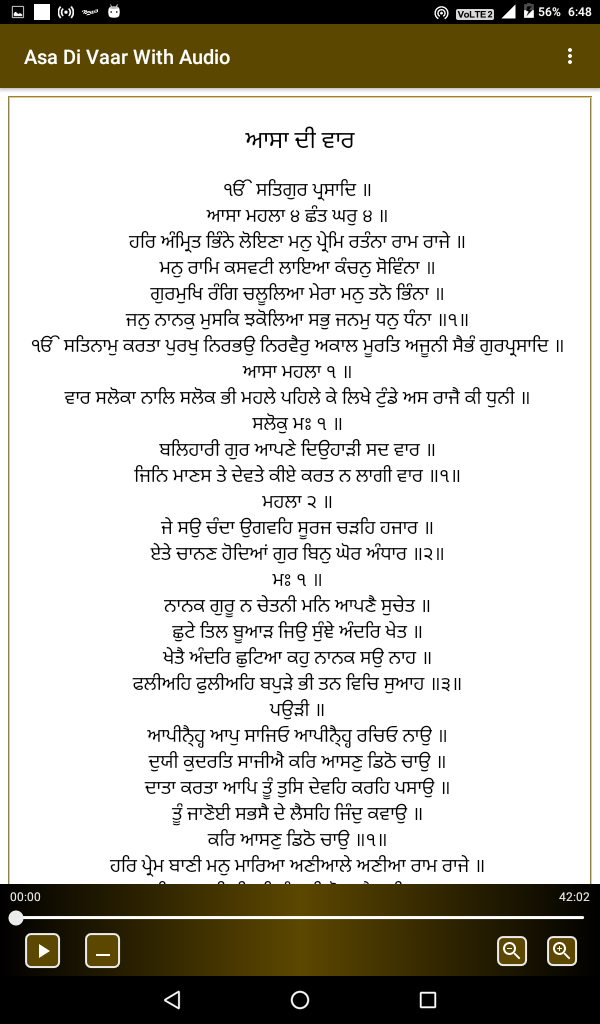 VoLTE 2 56% 6:48
Asa Di Vaar With Audio
ਆਸਾ ਦੀ ਵਾਰ
ੴ ਸਤਿਗੁਰ ਪ੍ਰਸਾਦਿ ॥
ਆਸਾ ਮਹਲਾ ੪ ਛੰਤ ਘਰੁ ੪ ॥
ਹਰਿ ਅੰਮ੍ਰਿਤ ਭਿੰਨੇ ਲੋਇਣਾ ਮਨੁ ਪ੍ਰੇਮਿ ਰਤੰਨਾ ਰਾਮ ਰਾਜੇ ॥
ਮਨੁ ਰਾਮਿ ਕਸਵਟੀ ਲਾਇਆ ਕੰਚਨੁ ਸੋਵਿੰਨਾ ॥
ਗੁਰਮੁਖਿ ਰੰਗਿ ਚਲੂਲਿਆ ਮੇਰਾ ਮਨੁ ਤਨੋ ਭਿੰਨਾ ॥
ਜਨੁ ਨਾਨਕੁ ਮੁਸਕਿ ਝਕੋਲਿਆ ਸਭੁ ਜਨਮੁ ਧਨੁ ਧੰਨਾ ॥੧॥
ੴ ਸਤਿਨਾਮੁ ਕਰਤਾ ਪੁਰਖੁ ਨਿਰਭਉ ਨਿਰਵੈਰੁ ਅਕਾਲ ਮੂਰਤਿ ਅਜੂਨੀ ਸੈਭੰ ਗੁਰਪ੍ਰਸਾਦਿ ॥
ਆਸਾ ਮਹਲਾ ੧ ॥
ਵਾਰ ਸਲੋਕਾ ਨਾਲਿ ਸਲੋਕ ਭੀ ਮਹਲੇ ਪਹਿਲੇ ਕੇ ਲਿਖੇ ਟੁੰਡੇ ਅਸ ਰਾਜੈ ਕੀ ਧੁਨੀ ॥
ਸਲੋਕੁ ਮਃ ੧ ॥
ਬਲਿਹਾਰੀ ਗੁਰ ਆਪਣੇ ਦਿਉਹਾੜੀ ਸਦ ਵਾਰ ॥
ਜਿਨਿ ਮਾਣਸ ਤੇ ਦੇਵਤੇ ਕੀਏ ਕਰਤ ਨ ਲਾਗੀ ਵਾਰ ॥੧॥
ਮਹਲਾ ੨ ॥
ਜੇ ਸਉ ਚੰਦਾ ਉਗਵਹਿ ਸੂਰਜ ਚੜਹਿ ਹਜਾਰ ॥
ਏਤੇ ਚਾਨਣ ਹੋਦਿਆਂ ਗੁਰ ਬਿਨੁ ਘੋਰ ਅੰਧਾਰ ॥੨॥
ਮਃ ੧ ॥
ਨਾਨਕ ਗੁਰੂ ਨ ਚੇਤਨੀ ਮਨਿ ਆਪਣੈ ਸੁਚੇਤ ॥
ਛੁਟੇ ਤਿਲ ਬੂਆੜ ਜਿਉ ਸੁੰਞੇ ਅੰਦਰਿ ਖੇਤ ॥
ਖੇਤੈ ਅੰਦਰਿ ਛੁਟਿਆ ਕਹੁ ਨਾਨਕ ਸਉ ਨਾਹ ॥
ਫਲੀਅਹਿ ਫੁਲੀਅਹਿ ਬਪੁੜੇ ਭੀ ਤਨ ਵਿਚਿ ਸੁਆਹ ॥੩॥
ਪਉੜੀ ॥
ਆਪੀਨੈ੍ਹ੍ਹ ਆਪੁ ਸਾਜਿਓ ਆਪੀਨੈ੍ਹ੍ਹ ਰਚਿਓ ਨਾਉ ॥
ਦੁਯੀ ਕੁਦਰਤਿ ਸਾਜੀਐ ਕਰਿ ਆਸਣੁ ਡਿਠੋ ਚਾਉ ॥
ਦਾਤਾ ਕਰਤਾ ਆਪਿ ਤੂੰ ਤੁਸਿ ਦੇਵਹਿ ਕਰਹਿ ਪਸਾਉ ॥
ਤੂੰ ਜਾਣੋਈ ਸਭਸੈ ਦੇ ਲੈਸਹਿ ਜਿੰਦੁ ਕਵਾਉ ॥
ਕਰਿ ਆਸਣੁ ਡਿਠੋ ਚਾਉ ॥੧॥
ਹਰਿ ਪ੍ਰੇਮ ਬਾਣੀ ਮਨੁ ਮਾਰਿਆ ਅਣੀਆਲੇ ਅਣੀਆ ਰਾਮ ਰਾਜੇ ॥
00:00 42:02